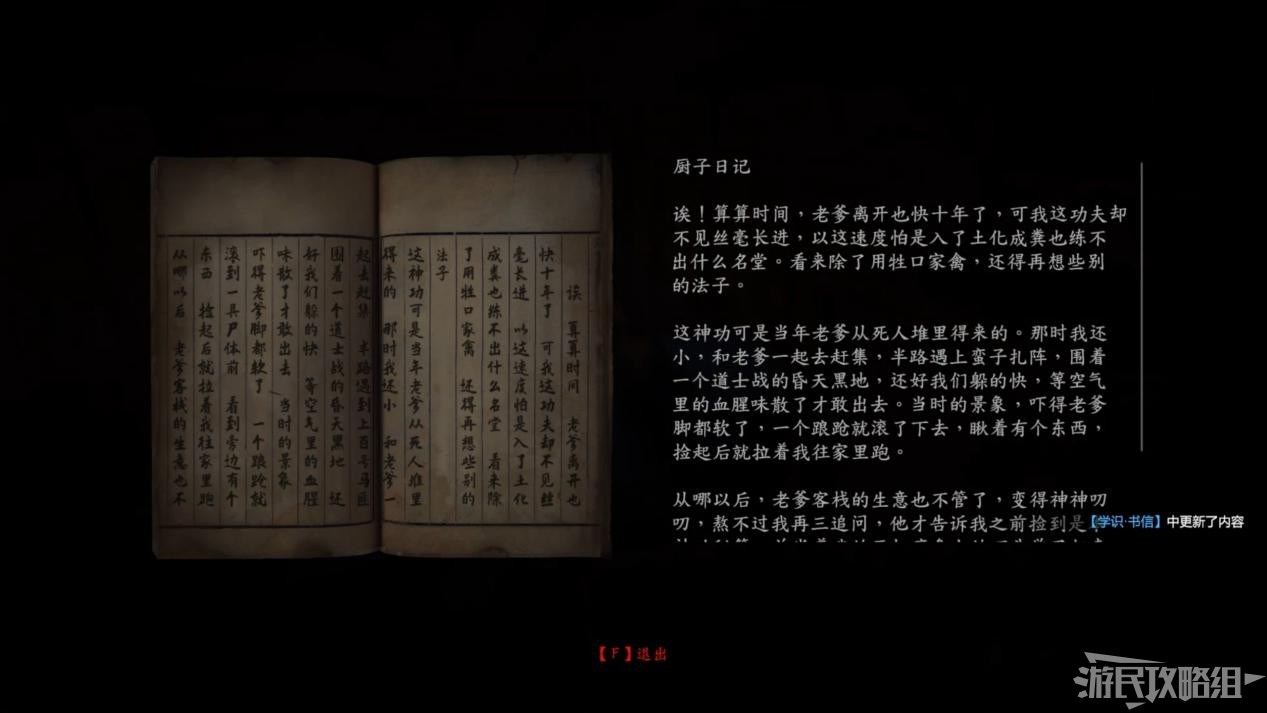 诶 算算时间 老爹离开也
快十年了 可我这功夫却不见丝
毫长进 以这速度怕是入了土化
成粪也练不出什么名堂 看来除
了用牲口家禽 还得再想些别的
法子
这神功可是当年老爹从死人堆里
得来的 那时我还小 和老爹一
起去赶集 半路遇到上百号马匪
围着一个道士战的昏天黑地 还
好我们躲的快 等空气里的血腥
味散了才敢出去 当时的景象
吓得老爹脚都软了 一个踉跄就
滚到一具尸体前 看到旁边有个
东西 捡起后就拉着我往家里跑
从哪以后 老爹客栈的生意也不
厨子日记
诶！算算时间，老爹离开也快十年了，可我这功夫却
不见丝毫长进，以这速度怕是入了土化成粪也练不
出什么名堂。看来除了用牲口家禽，还得再想些别
的法子。
这神功可是当年老爹从死人堆里得来的。那时我还
小，和老爹一起去赶集，半路遇上蛮子扎阵，围着
一个道士战的昏天黑地，还好我们躲的快，等空气
里的血腥味散了才敢出去。当时的景象，吓得老爹
脚都软了，一个踉跄就滚了下去，瞅着有个东西，
捡起后就拉着我往家里跑。
从哪以后，老爹客栈的生意也不管了，变得神神叨
叨，熬不过我再三追问，他才告诉我之前捡到是
【学识·书信】中更新了内容
【F】退出
游民攻略组